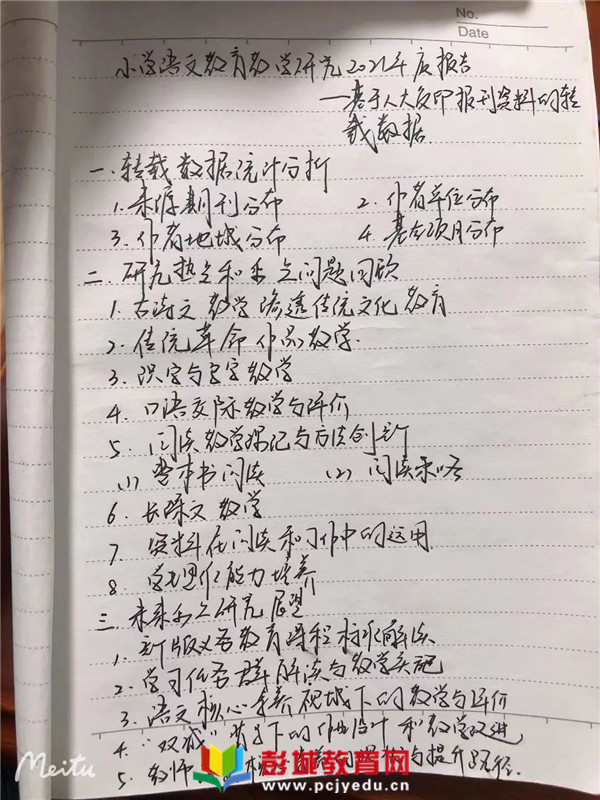 No.
Date
小学语文教育教学研究2021年度报告
——基于人大复印报刊资料的转
载数据
一.转载数据统计分析
1.来源期刊分布 2.作者单位分布
3.作者地域分布 4.基金项目分布
二.研究热点和重点问题回顾
1.古诗文教学渗透传统文化教育
2.传统革命作品教学.
3.识字与写字教学
4.口语交际教学与评价
5.阅读教学理论与方法创新
(1)整本书阅读 (2)阅读策略
6.长课文教学
7.资料在阅读和习作中的运用.
8.学生思维能力培养
三.未来重点研究展望
1.新版义务教育课程标准解读
2.学习任务群解读与教学实施
3.语文核心素养视域下的教学与评价
4."双减"背景下的作业设计和教学改进
5.教师 与提升路径.
Meitu
彭城教育网
www.pcjyedu.cn